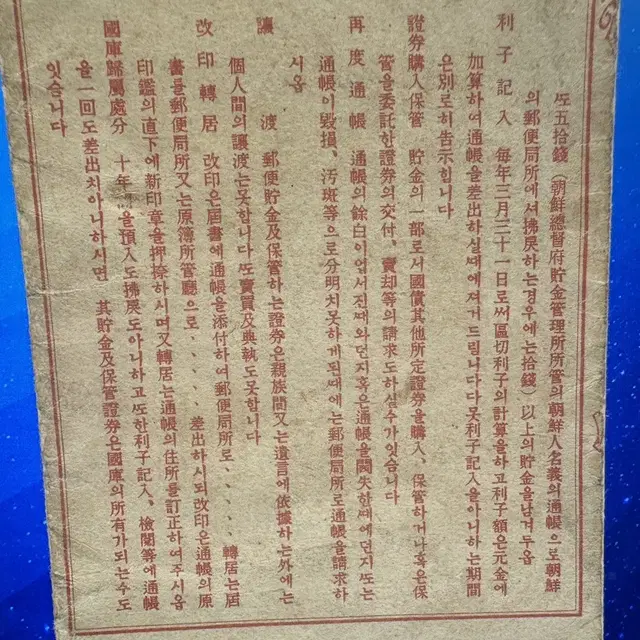 ᄯᅩ五拾錢(朝鮮總督府貯金管理所所管의朝鮮人名義의通帳으로朝鮮
의郵便局所에셔拂戾하는경우에는拾錢)以上의貯金을남겨두옵
利子記入 每年三月三十一日로써區切利子의計算을하고利子額은元金에
加算하여通帳을差出하실때에져거드립니다다못利子記入을아니하는期間
은別로히告示합니다
證券購入保管 貯金의一部로서國債其他所定證券을購入、保管하거나혹은保
管을委託한證券의交付、賣却等의請求도하실수가잇습니다
再度通帳 通帳의餘白이업서진때와던지혹은通帳을闕失한때에던지ᄯᅩ는
通帳이毁損、汚斑等으로分明치못하게된때에는郵便局所로通帳을請求하
시옵
讓渡 郵便貯金及保管하는證券은親族間又는遺言에依據하는外에는
個人間의讓渡는못합니다ᄯᅩ賣買及典執도못합니다
改印轉居 改印은屆書에通帳을添付하여郵便局所로、、、、、轉居는屆
書를郵便局所又는原簿所管廳으로、、、、差出하시되改印은通帳의原
印鑑의直下에新印章을押捺하시며又轉居는通帳의住所를訂正하여주시옵
國庫歸屬處分 十年 을預入도拂戾도아니하고ᄯᅩ한利子記入、檢閱等에通帳
을一回도差出치아니하시면 其貯金及保管證券은國庫의所有가되는수도
잇습니다